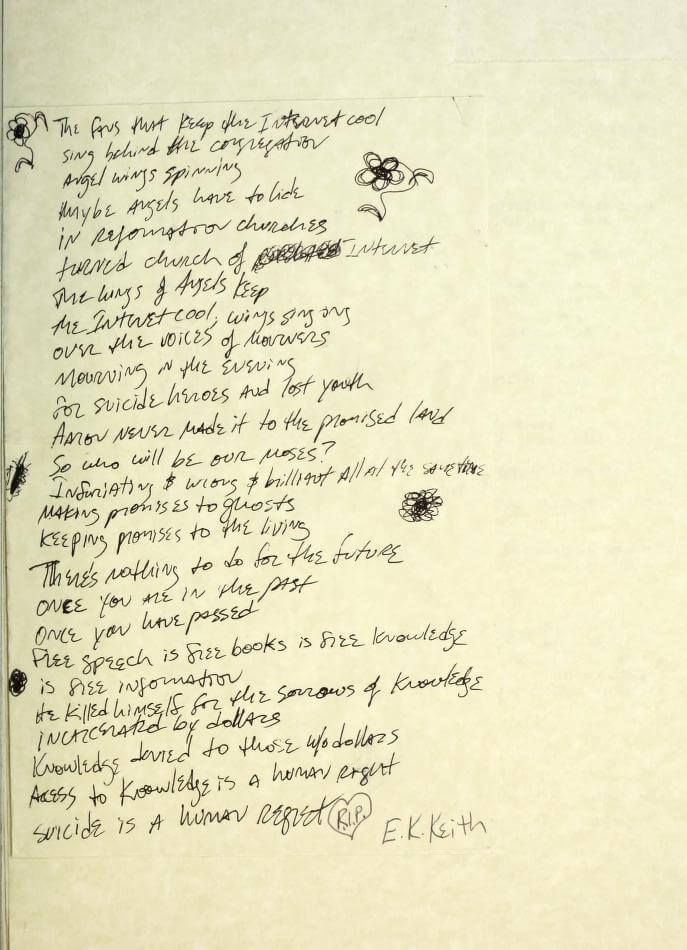 The fans that keep the Internet cool
sing behind the congregation
Angel wings spinning
Maybe Angels have to hide
in reformation churches
turned church of Internet
The wings of Angels keep
the Internet cool, wings sing song
over the voices of Mourners
Mourning in the evening
for suicide heroes and lost youth
Aaron never made it to the promised land
So who will be our Moses?
Infuriating & wrong & brilliant All at the same time
Making promises to ghosts
Keeping promises to the living
There's nothing to do for the future
once you are in the past
once you have passed
Free speech is free books is free knowledge
is free information
He killed himself for the sorrows of knowledge
incarcerated by dollars
Knowledge denied to those w/o dollars
Access to knowledge is a human right
suicide is a human regret R.I.P.
E.K.Keith